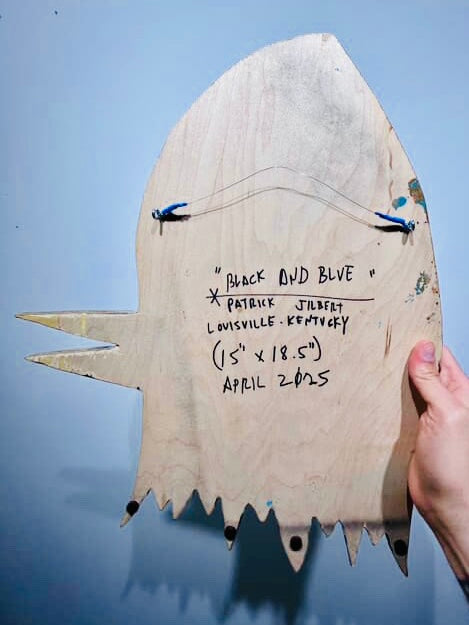 "BLACK AND BLUE"
* PATRICK JILBERT
LOUISVILLE. KENTUCKY
(15" x 18.5")
APRIL 2025